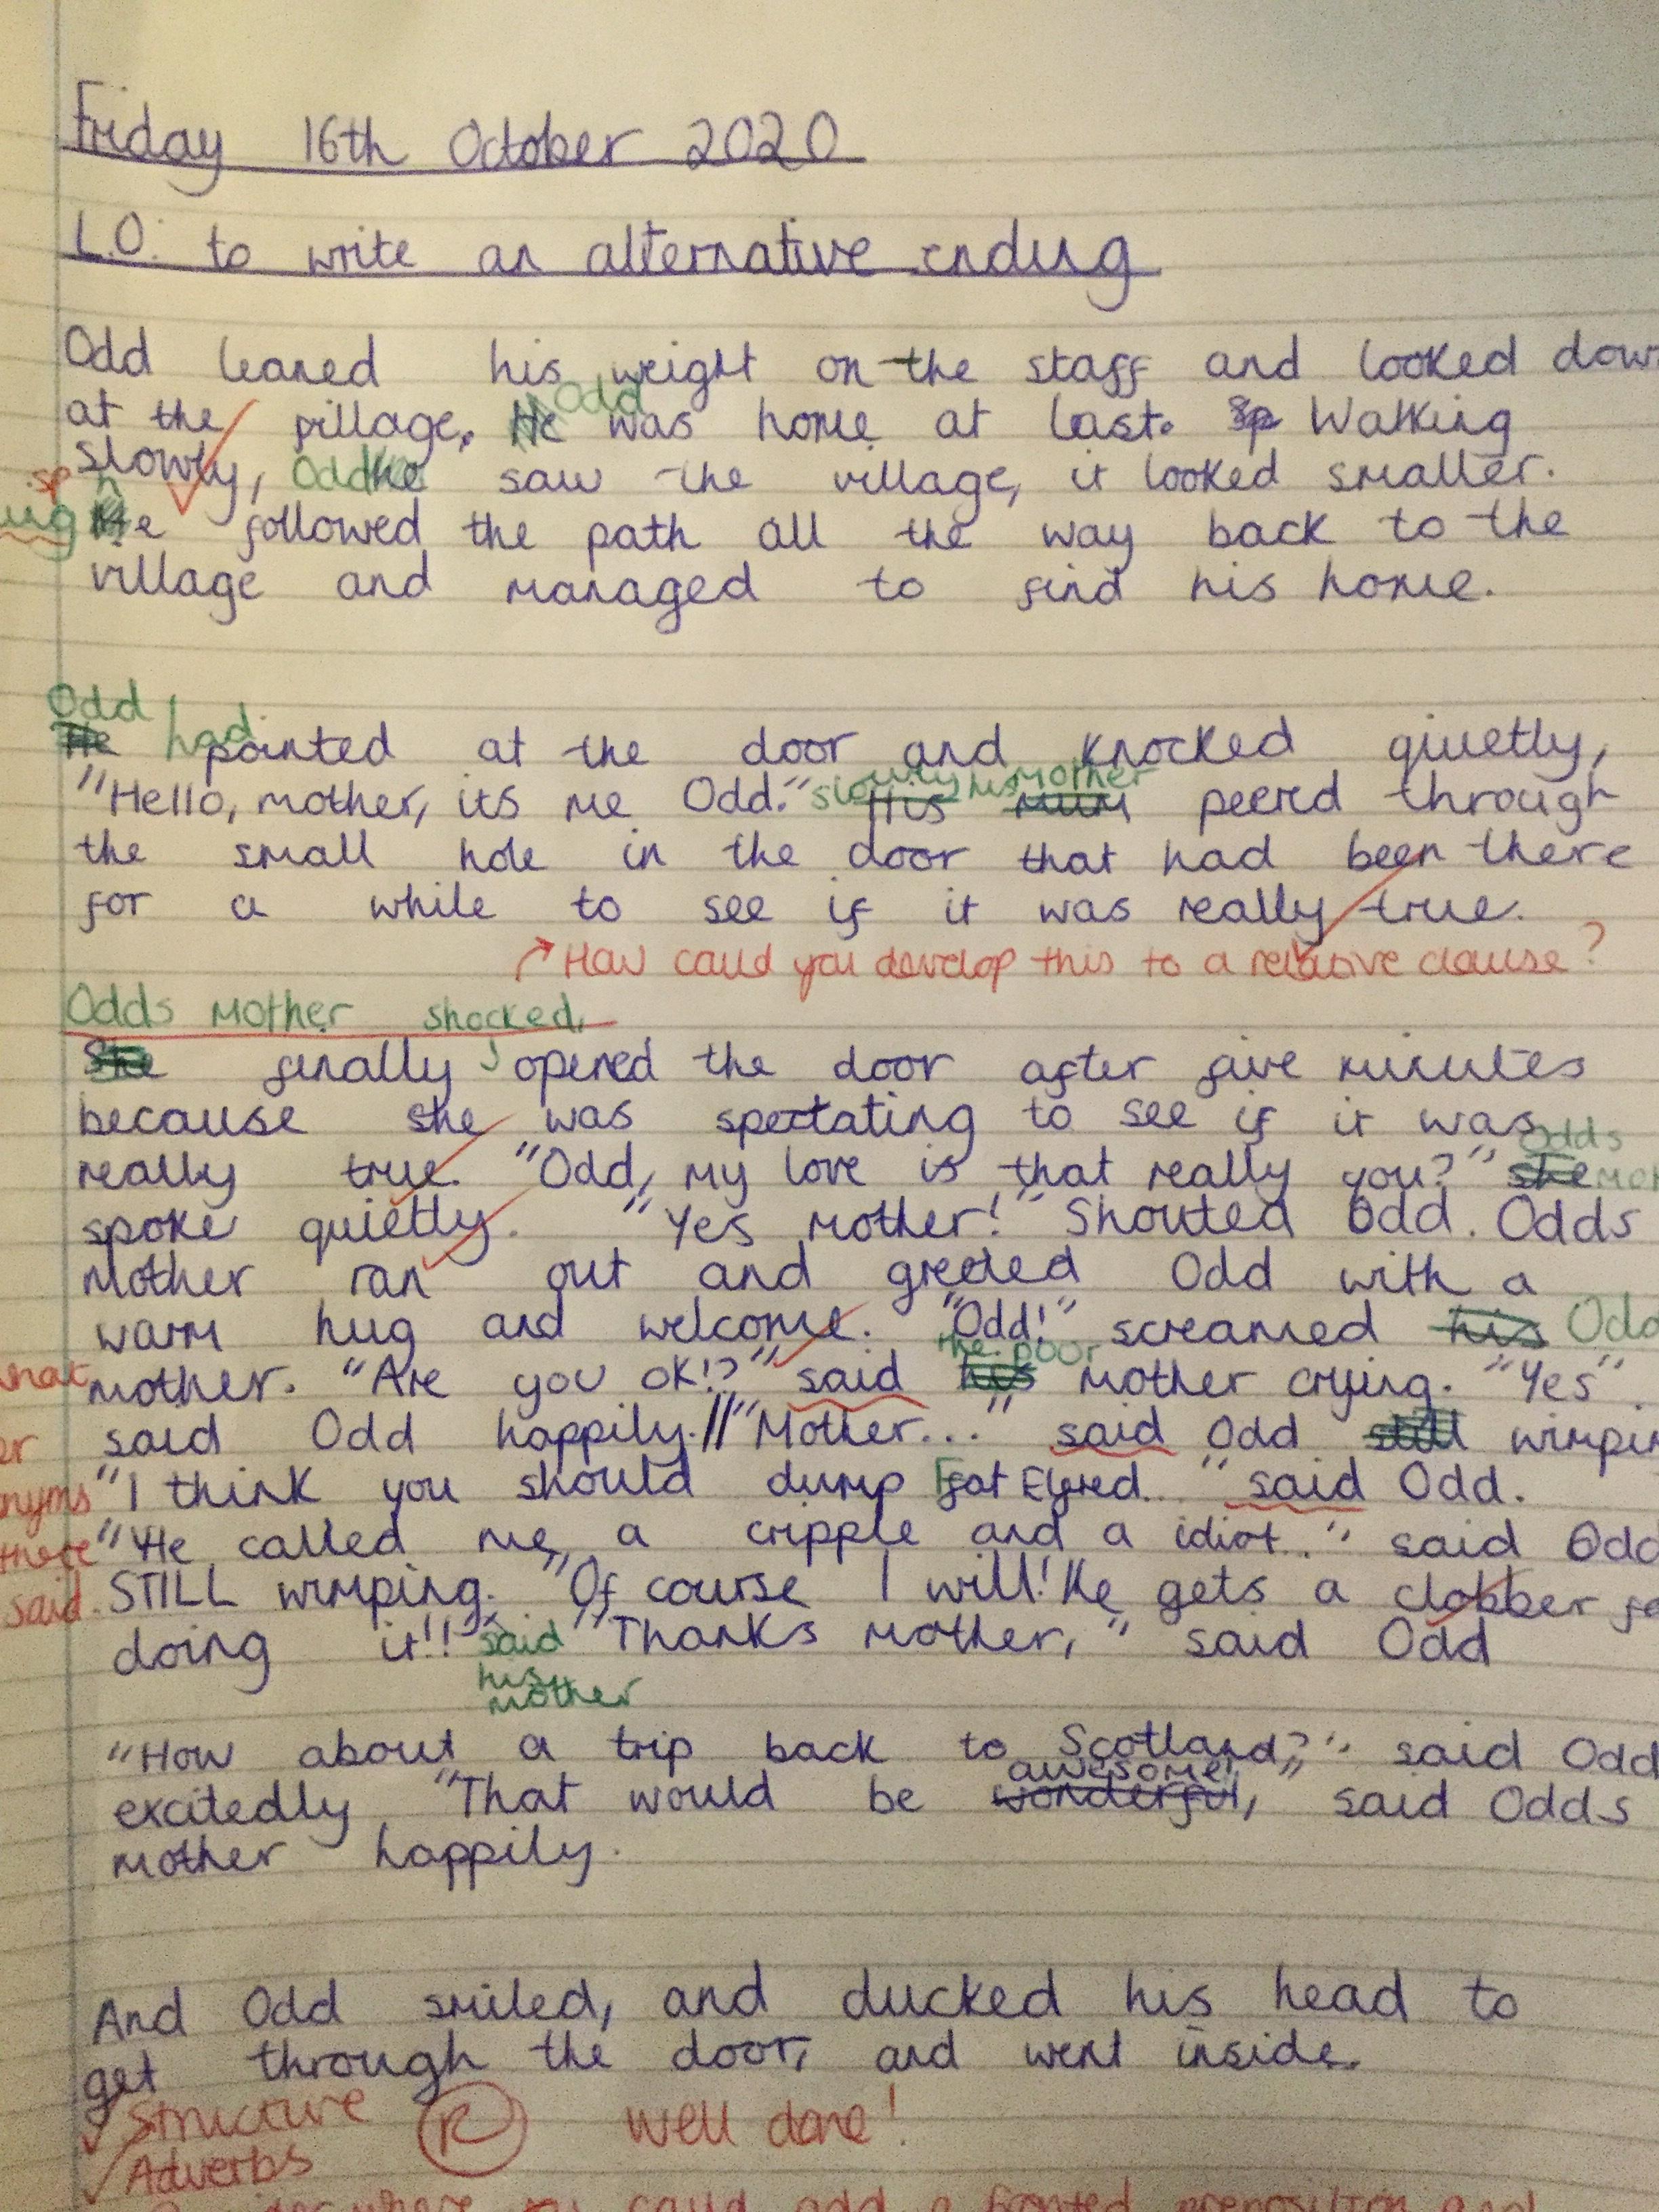 Friday 16th October 2020
L.O: to write an alternative ending
Odd leaned his weight on the staff and looked down
Odd
at the pillage. He was home at last. Sp Walking
slowly, Odd he saw the village, it looked smaller.
sp h
ing He followed the path all the way back to the
village and managed to find his home.
Odd had
He pointed at the door and knocked quietly,
slowly his Mother
"Hello, mother, its me Odd." His mum peered through
the small hole in the door that had been there
for a while to see if it was really true.
How could you develop this to a relative clause?
Odds Mother shocked,
She finally opened the door after five minutes
because she was spectating to see if it was
Odds
really true. "Odd, my love is that really you?" she
spoke quietly. "Yes mother!" Shouted Odd. Odds
Mother ran out and greeted Odd with a
warm hug and welcome. "Odd!" screamed his Odd
the poor
mother. "Are you ok!?" said his mother crying. "Yes"
said Odd happily.//"Mother..." said Odd still
"I think you should dump Fat Elfred..." said Odd.
"He called me a cripple and a idiot.." said Odd
said. STILL wimping. "Of course I will! He gets a clobber
doing it!!" said "Thanks mother," said Odd
his
mother
"How about a trip back to Scotland?" said Odd
awesome!"
excitedly "That would be wonderful, said Odds
mother happily.
And Odd smiled, and ducked his head to
get through the door, and went inside.
✓ Structure R Well done!
✓ Adverbs
where you could add a fronted preposition and